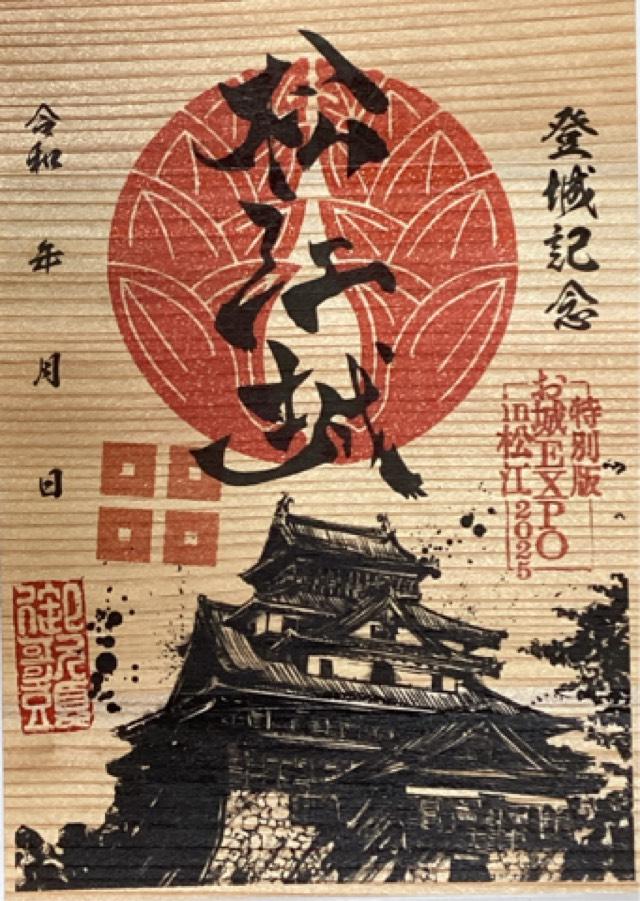 登城記念
松江城
特別版
お城EXPO
in松江2025
令和 年 月 日